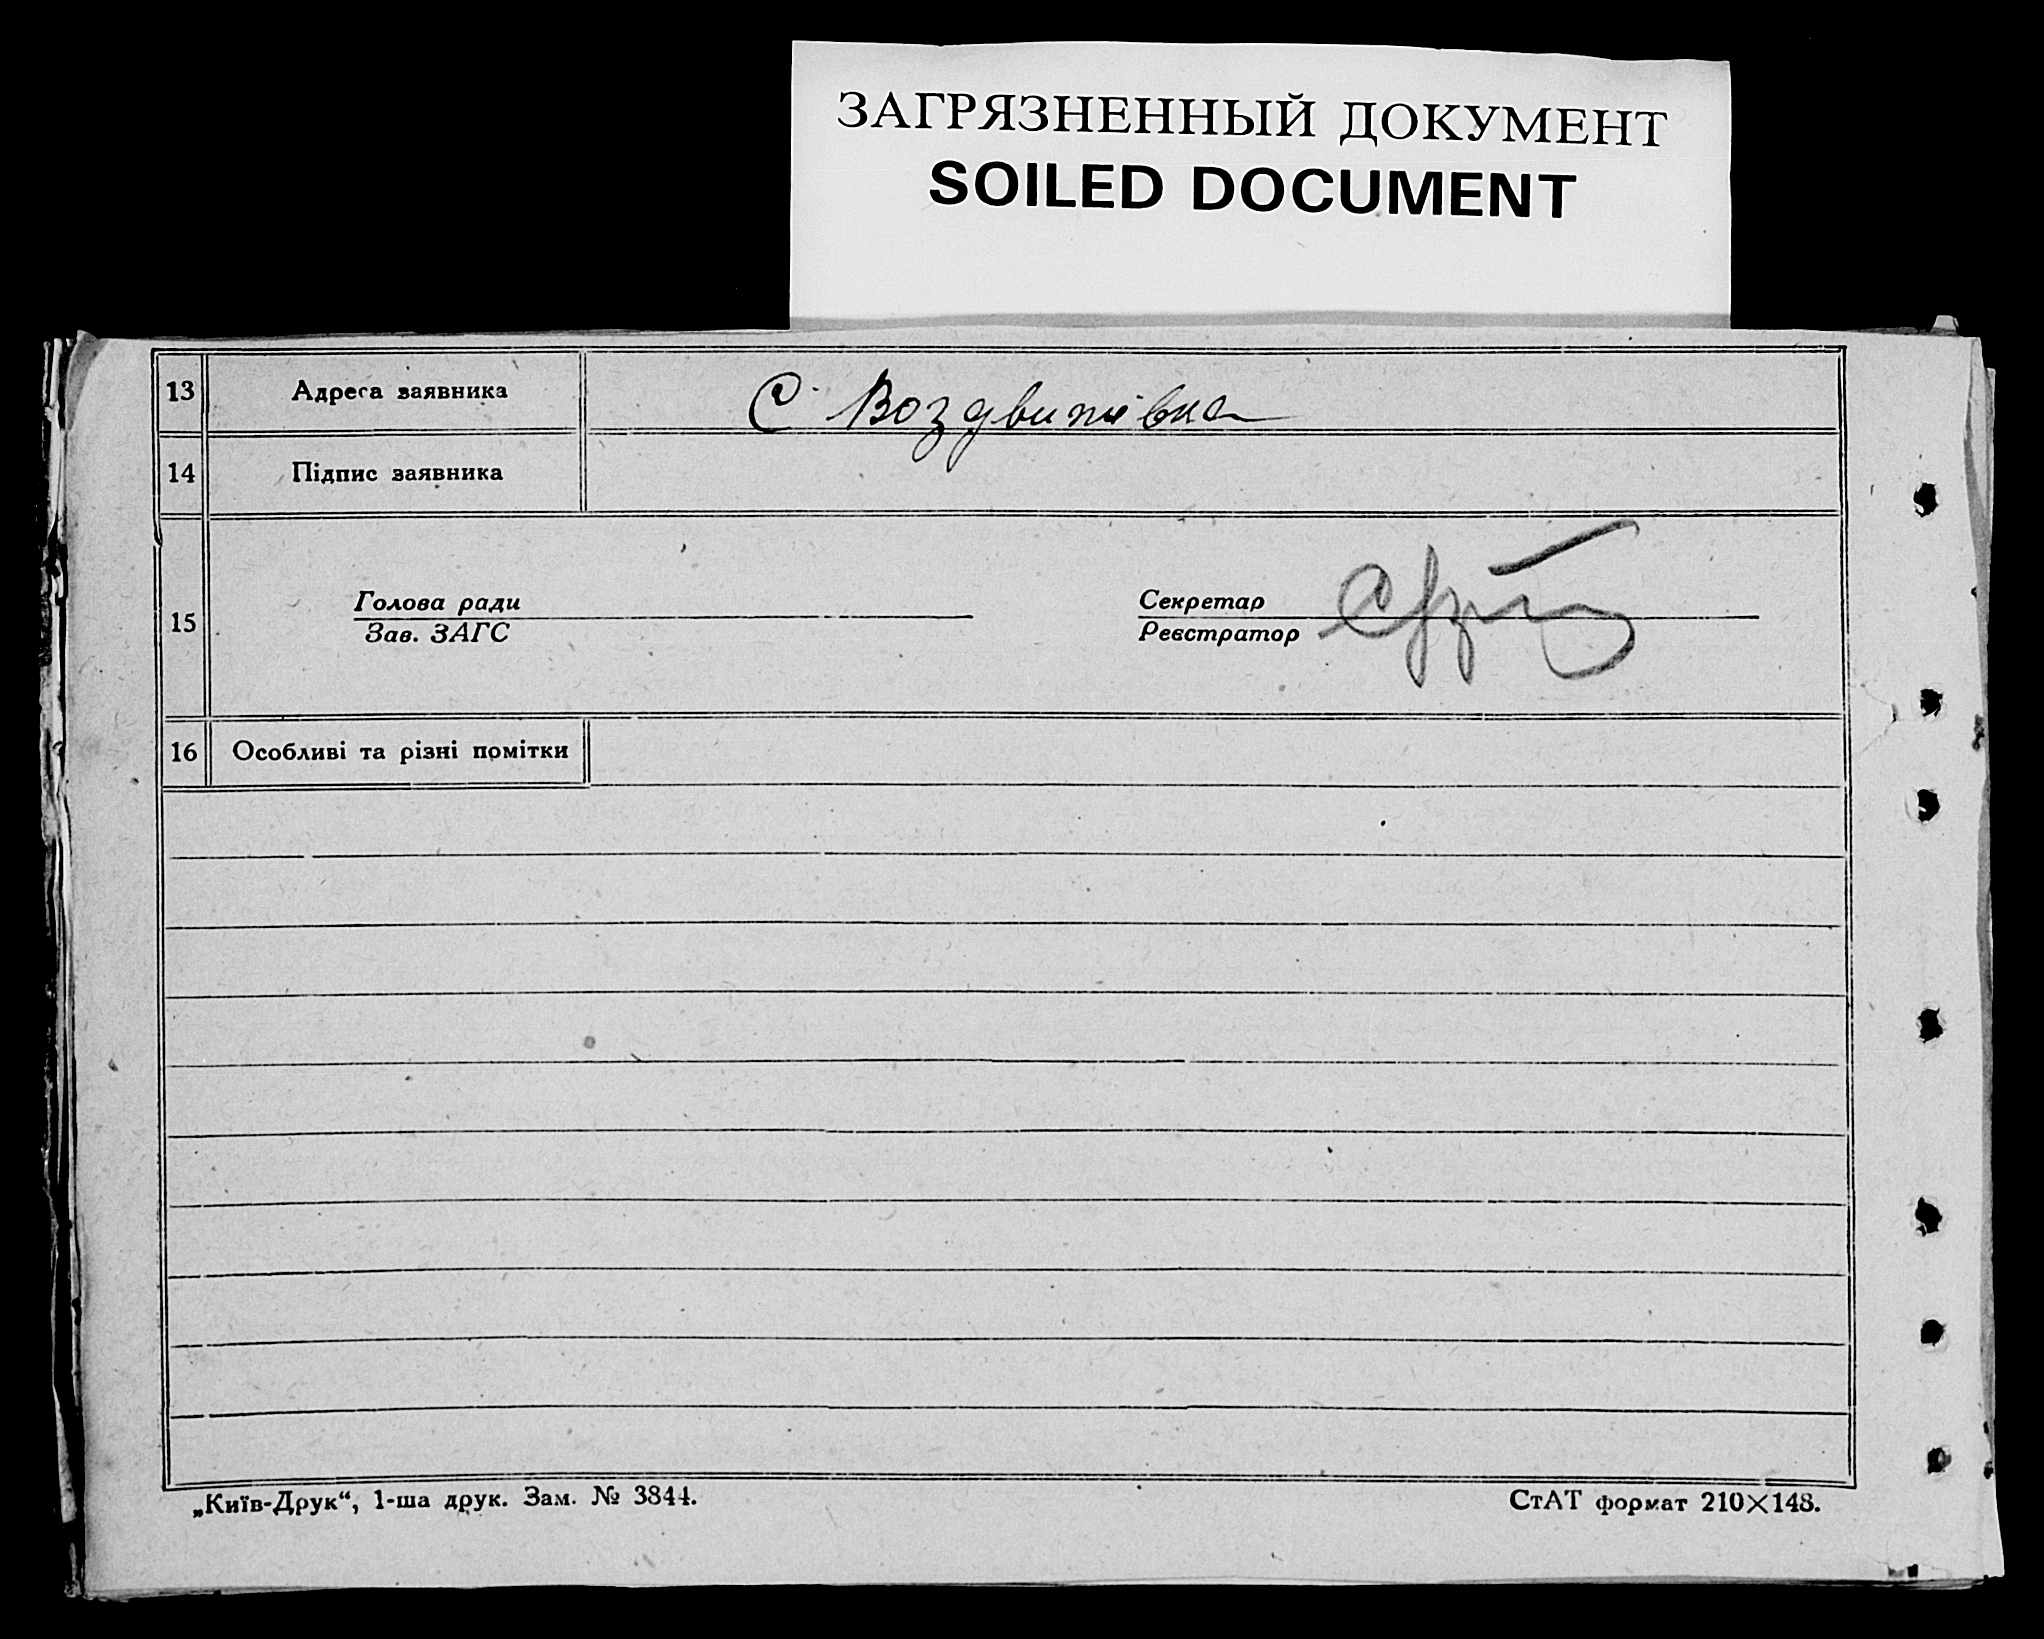 ЗАГРЯЗНЕННЫЙ ДОКУМЕНТ
SOILED DOCUMENT
13 Адреса заявника С Воздвижівка
14 Підпис заявника
15 Голова ради Секретар
Зав. ЗАГС Реєстратор
16 Особливі та різні помітки
„Київ-Друк“, 1-ша друк. Зам. № 3844. СтАТ формат 210×148.